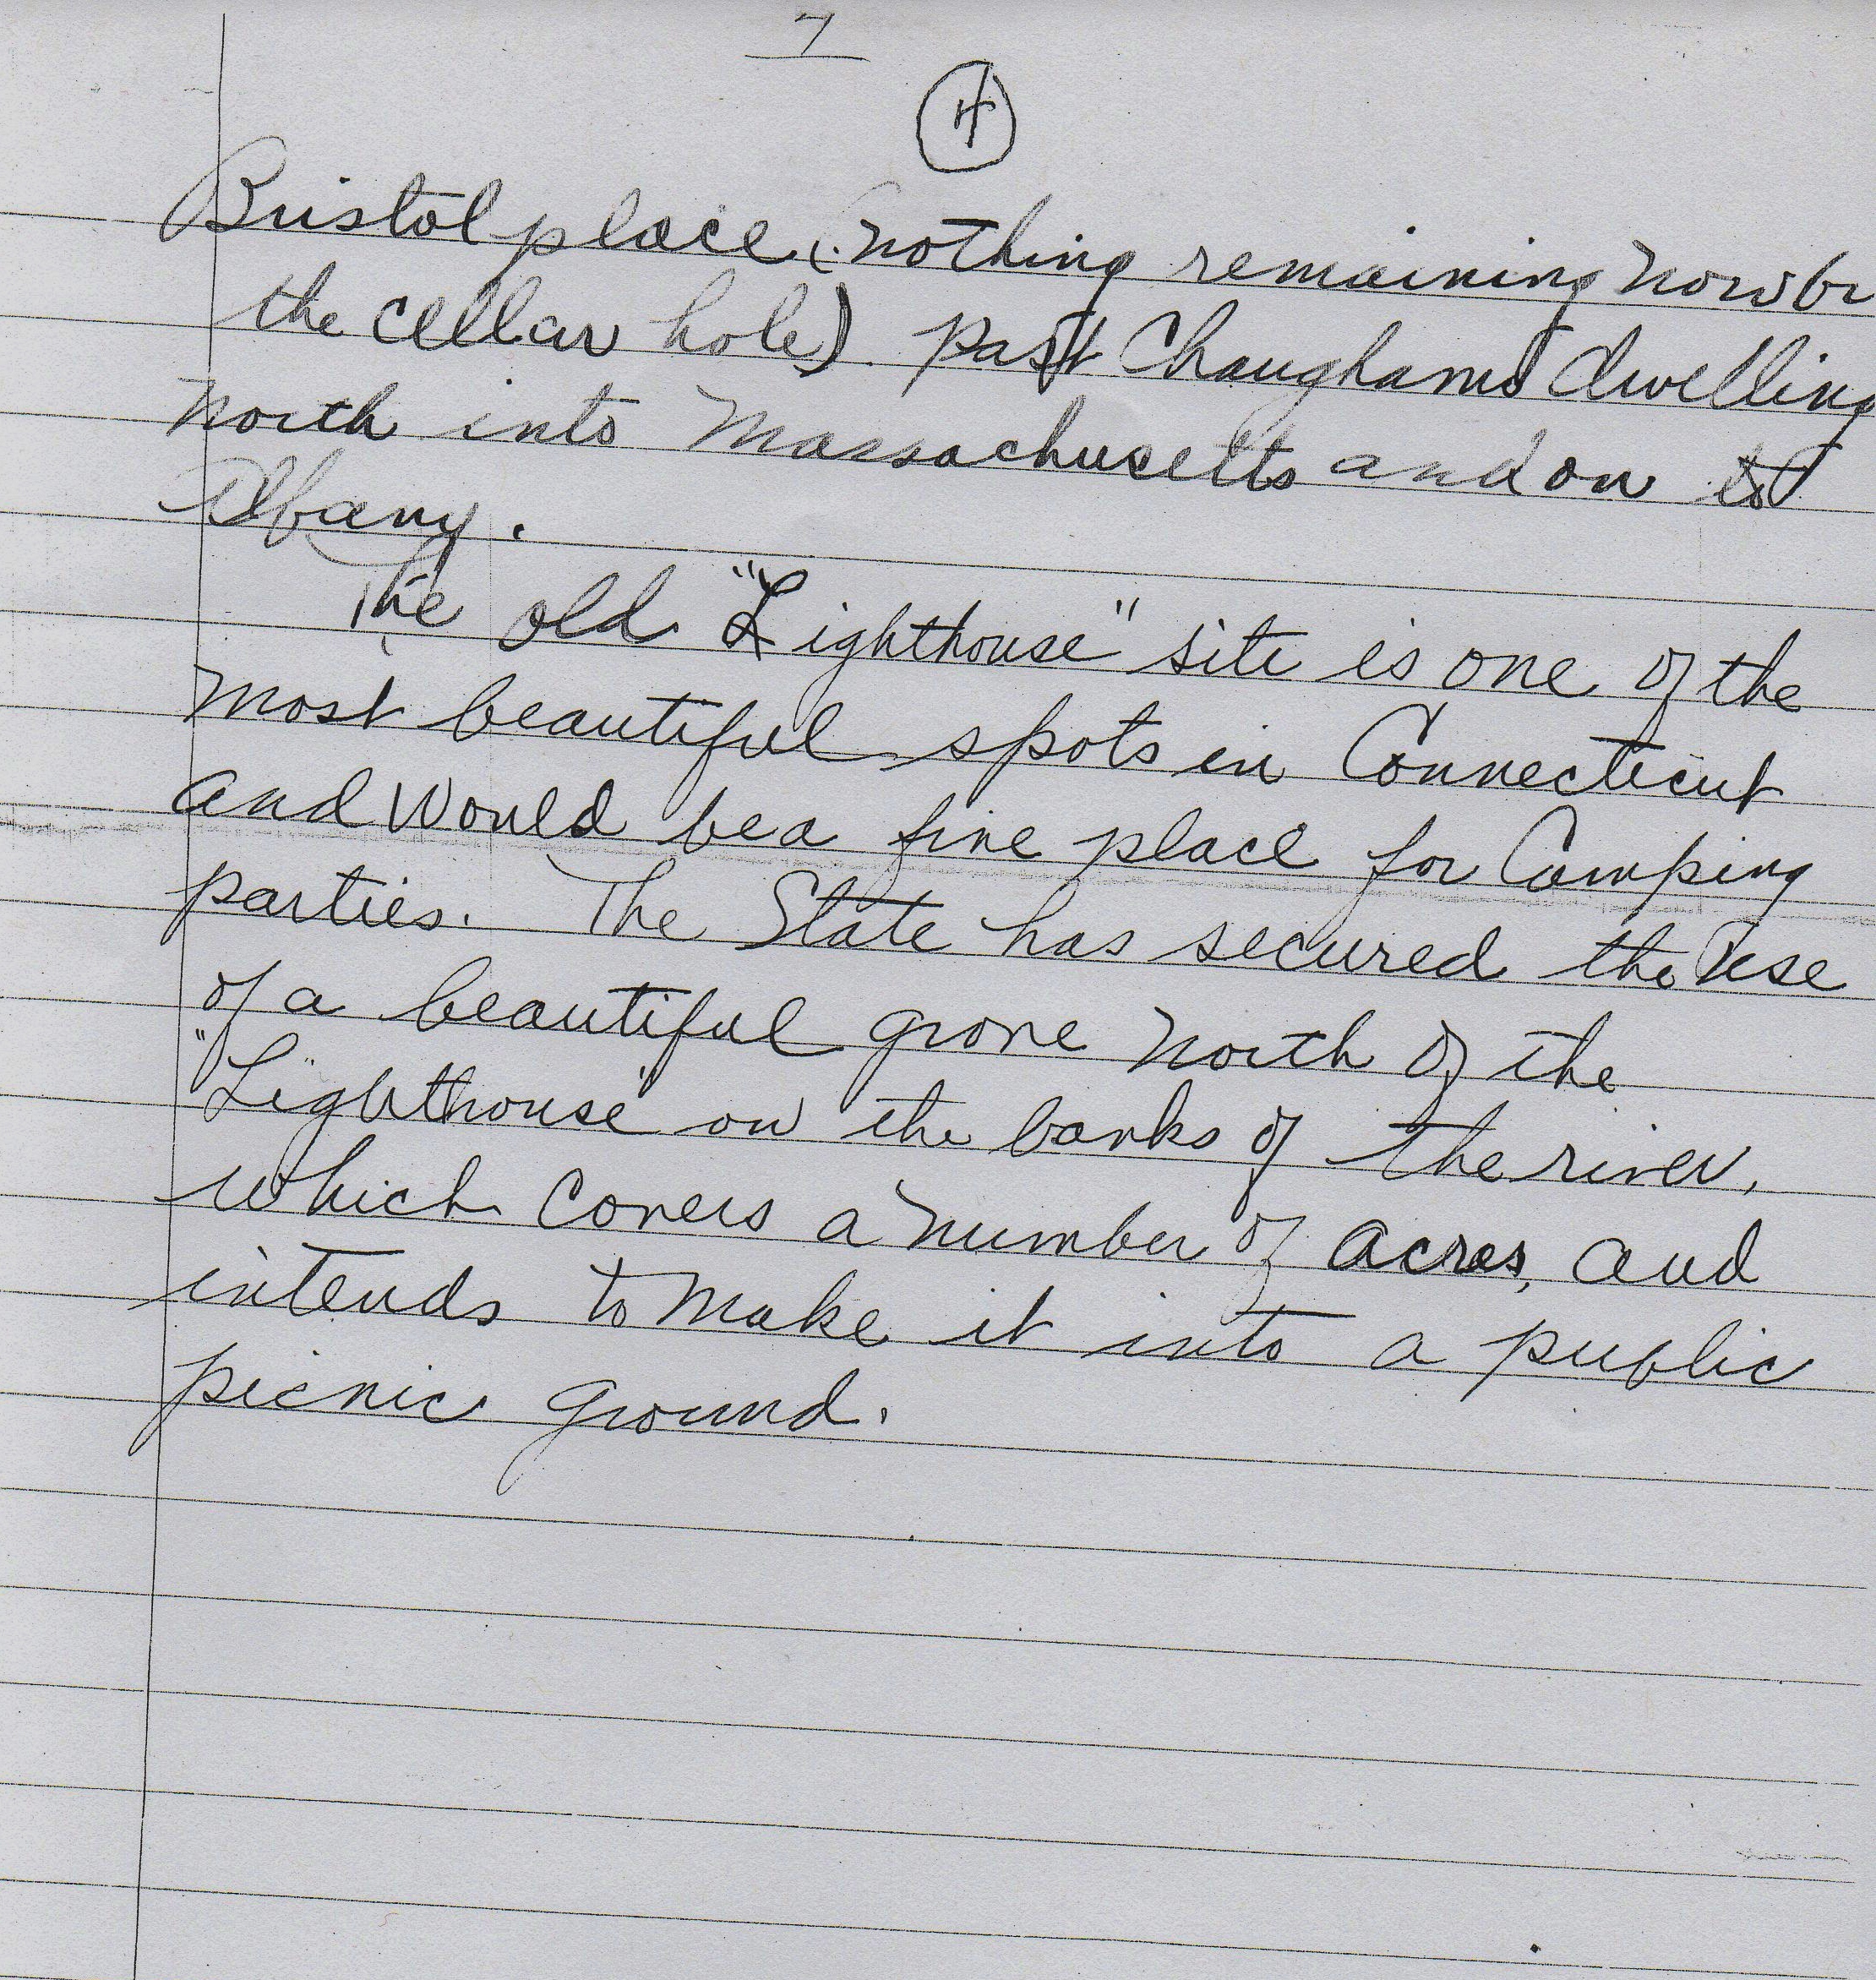 7
4
Bristol place (nothing remaining now bu
the cellar hole) past Chaughams dwelling
north into Massachusetts and on to
Albany.
The old "Lighthouse" site is one of the
most beautiful spots in Connecticut
and would be a fine place for Camping
parties. The State has secured the use
of a beautiful grove north of the
"Lighthouse" on the banks of the river,
which covers a number of acres, and
intends to make it into a public
picnic ground.